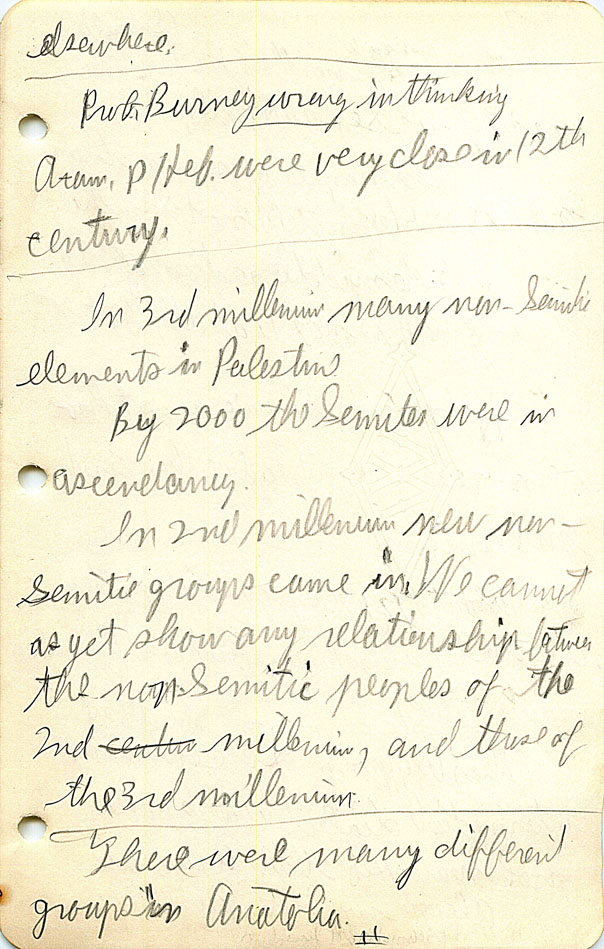 elsewhere.
Prof. Burney wrong in thinking
Aram. & Heb. were very close in 12th
century.
In 3rd millenium many non-Semitic
elements in Palestine
By 2000 the Semites were in
ascendancy.
In 2nd millenium new non-
Semitic groups came in. We cannot
as yet show any relationship between
the non-Semitic peoples of the
2nd millenium, and those of
the 3rd millenium.
There were many different
groups in Anatolia.